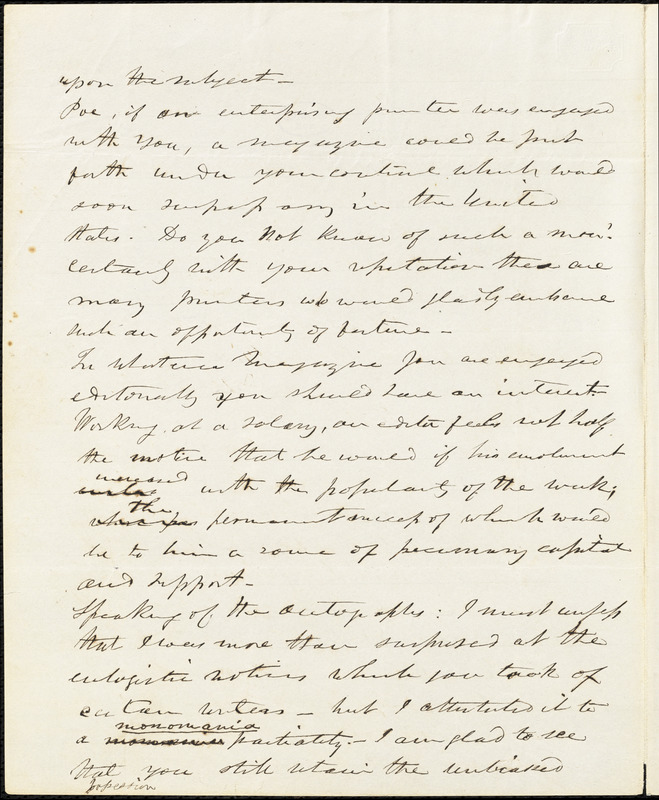 upon the subject—
Poe, if an enterprising printer was engaged
with you, a magazine could be put
forth under your control which would
soon surpass any in the United
States. Do you not know of such a man?
Certainly with your reputation there are
many printers who would gladly embrace
such an opportunity of fortune—
In whatever magazine you are engaged
editorially you should have an interest—
Working at a salary, an editor feels not half
the motive that he would if his emolument
increased
with the popularity of the work;
the
permanent success of which would
be to him a source of pecuniary capital
and support—
Speaking of the autographs: I must confess
that I was more than surprised at the
eulogistic notices which you took of
certain writers— but I attributed it to
monomania
a monomania partiality— I am glad to see
that you still retain the unbiased
possession